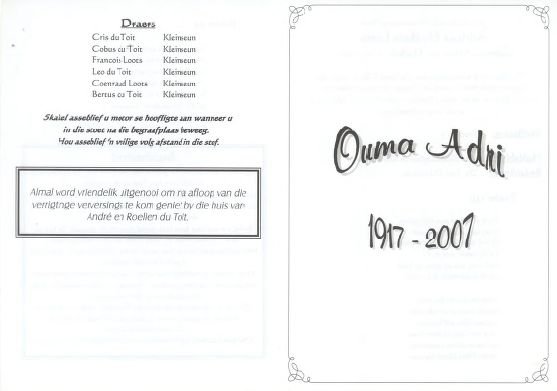 Draers
Cris du Toit Kleinseun
Cobus du Toit Kleinseun
Francois Loots Kleinseun
Leo du Toit Kleinseun
Coenraad Loots Kleinseun
Bertus du Toit Kleinseun
Skakel asseblief u motor se hoofligte aan wanneer u
in die stoet na die begraafplaas beweeg.
Hou asseblief 'n veilige volg afstand in die stoet.
Almal word vriendelik uitgenooi om na afloop van die
verrigtinge verversings te kom geniet by die huis van
André en Roelien du Toit.
Ouma Adri
1917 - 2007